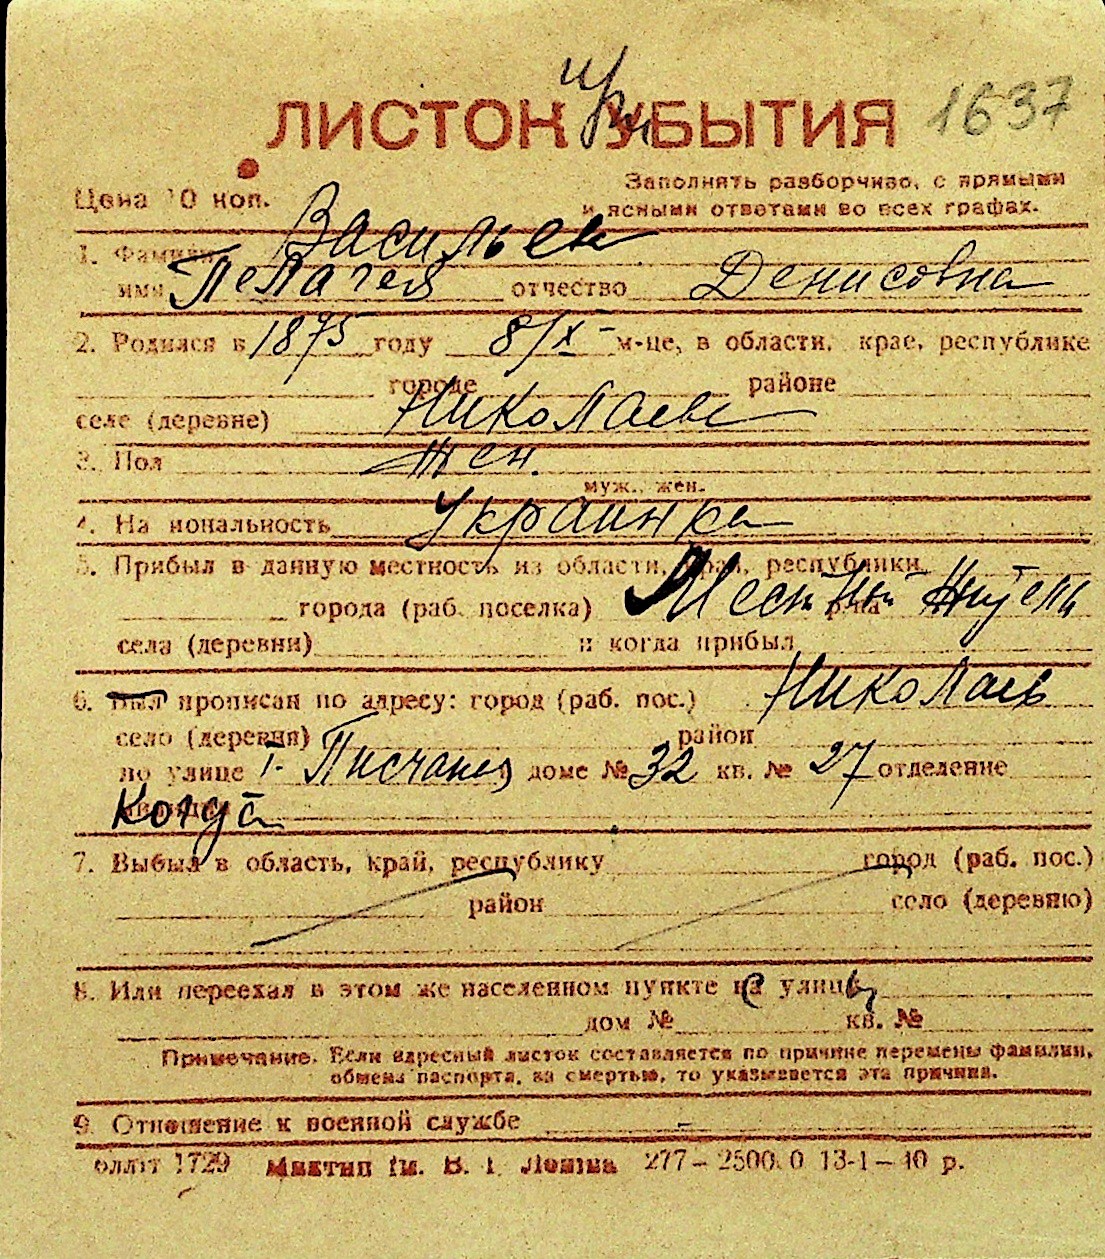 ЛИСТОК УБЫТИЯ 1637
Цена 10 коп.
Заполнять разборчиво, с прямыми
и ясными ответами во всех графах.
1. Фамилия Васильев
имя Пелагея отчество Денисовна
2. Родился в 1875 году 8/X- м-це, в области, крае, республике
городе районе
селе (деревне) Николаеве
3. Пол Жен.
муж., жен.
4. Национальность Украинка
5. Прибыл в данную местность из области, края, республики
города (раб. поселка) р-на Местный житель
села (деревни) и когда прибыл
6. Был прописан по адресу: город (раб. пос.) Николаев
село (деревня) район
по улице доме № 32 кв. № 27 отделение
милиции Когда
7. Выбыл в область, край, республику город (раб. пос.)
район село (деревню)
8. Или переехал в этом же населенном пункте на улицу
дом № кв. №
Примечание. Если адресный листок составляется по причине перемены фамилии,
обмена паспорта, за смертью, то указывается эта причина.
9. Отношение к военной службе -
1729 277—2500.0 13-1—40 р.